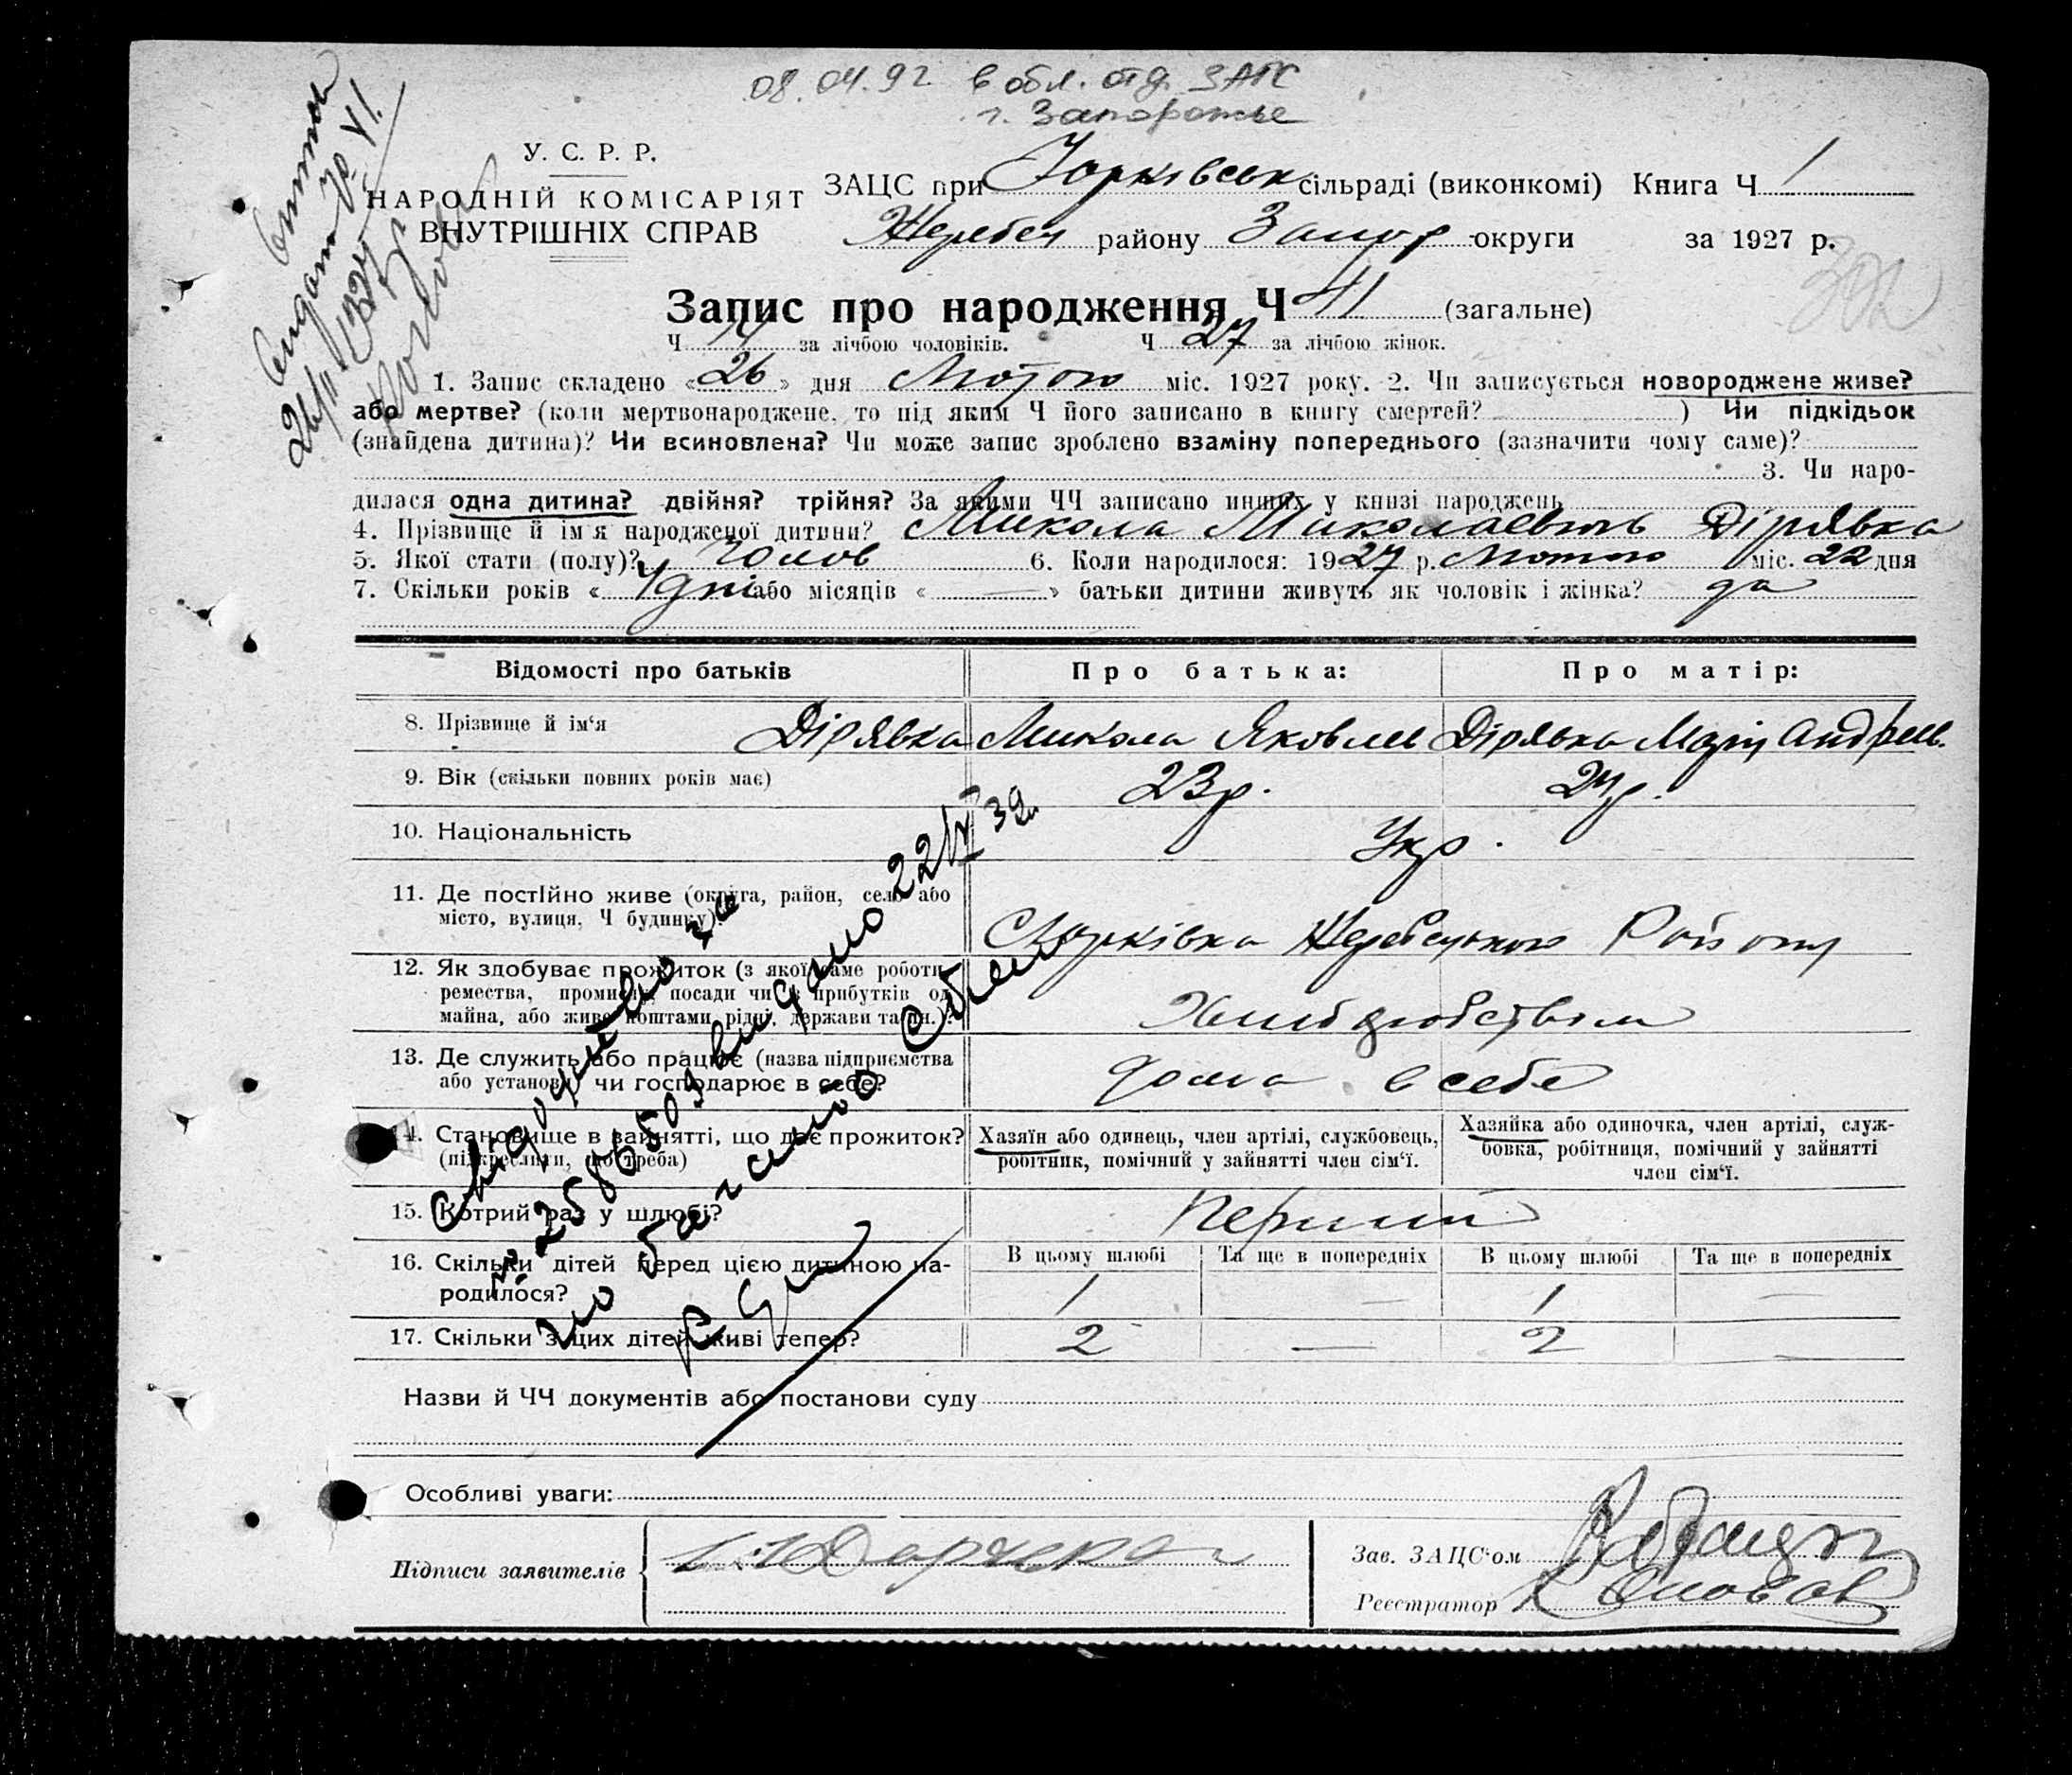 08.04.92 в обл. отд. ЗАГС
г. Запорожье
У. С. Р. Р.
НАРОДНІЙ КОМІСАРІЯТ
ВНУТРІШНІХ СПРАВ
ЗАЦС при Юрківськ сільраді (виконкомі) Книга Ч 1
Жеребец району Запор округи за 1927 р.
302
Запис про народження Ч 41 (загальне)
Ч 14 за лічбою чоловіків. Ч 27 за лічбою жінок.
1. Запис складено «26» дня Лютого міс. 1927 року. 2. Чи записується новороджене живе?
або мертве? (коли мертвонароджене, то під яким Ч його записано в книгу смертей? ) Чи підкідьок
(знайдена дитина)? Чи всиновлена? Чи може запис зроблено взаміну попереднього (зазначити чому саме)?
3. Чи наро-
дилася одна дитина? двійня? трійня? За якими ЧЧ записано инших у книзі народжень
4. Прізвище й ім'я народженої дитини? Микола Миколаевичь Дірявка
5. Якої стати (полу)? чолов 6. Коли народилося: 1927 р. Лютого міс. 22 дня
7. Скільки років « 4 дні або місяців « — » батьки дитини живуть як чоловік і жінка? да
Відомості про батьків Про батька: Про матір:
8. Прізвище й ім'я Дірявка Микола Яковлев Дірявка Марія Андреев.
9. Вік (скільки повних років має) 23 р. 24 р.
10. Національність Укр.
11. Де постійно живе (округа, район, село або
місто, вулиця, Ч будинку)? Юрківка Жеребецького Району
12. Як здобуває прожиток (з якої саме роботи
ремества, промислу, посади чи з прибутків од
майна, або живе коштами рідні, держави та ин.)? Хлибородством
13. Де служить або працює (назва підприємства
або установи) чи господарює в себе? дома в себе
14. Становище в занятті, що дає прожиток?
(підкреслити, що треба)
Хазяїн або одинець, член артілі, службовець,
робітник, помічний у зайнятті член сім'ї.
Хазяйка або одиночка, член артілі, служ-
бовка, робітниця, помічний у зайнятті
член сім'ї.
15. Котрий раз у шлюбі? Перший
16. Скільки дітей перед цією дитиною на-
родилося?
В цьому шлюбі Та ще в попередніх В цьому шлюбі Та ще в попередніх
1 — 1 —
17. Скільки з цих дітей живі тепер? 2 — 2 —
Назви й ЧЧ документів або постанови суду
Особливі уваги:
Підписи заявителів
Зав. ЗАЦС'ом
Реєстратор
Свідоцтво за
№ 258650 видано 22/VI 39